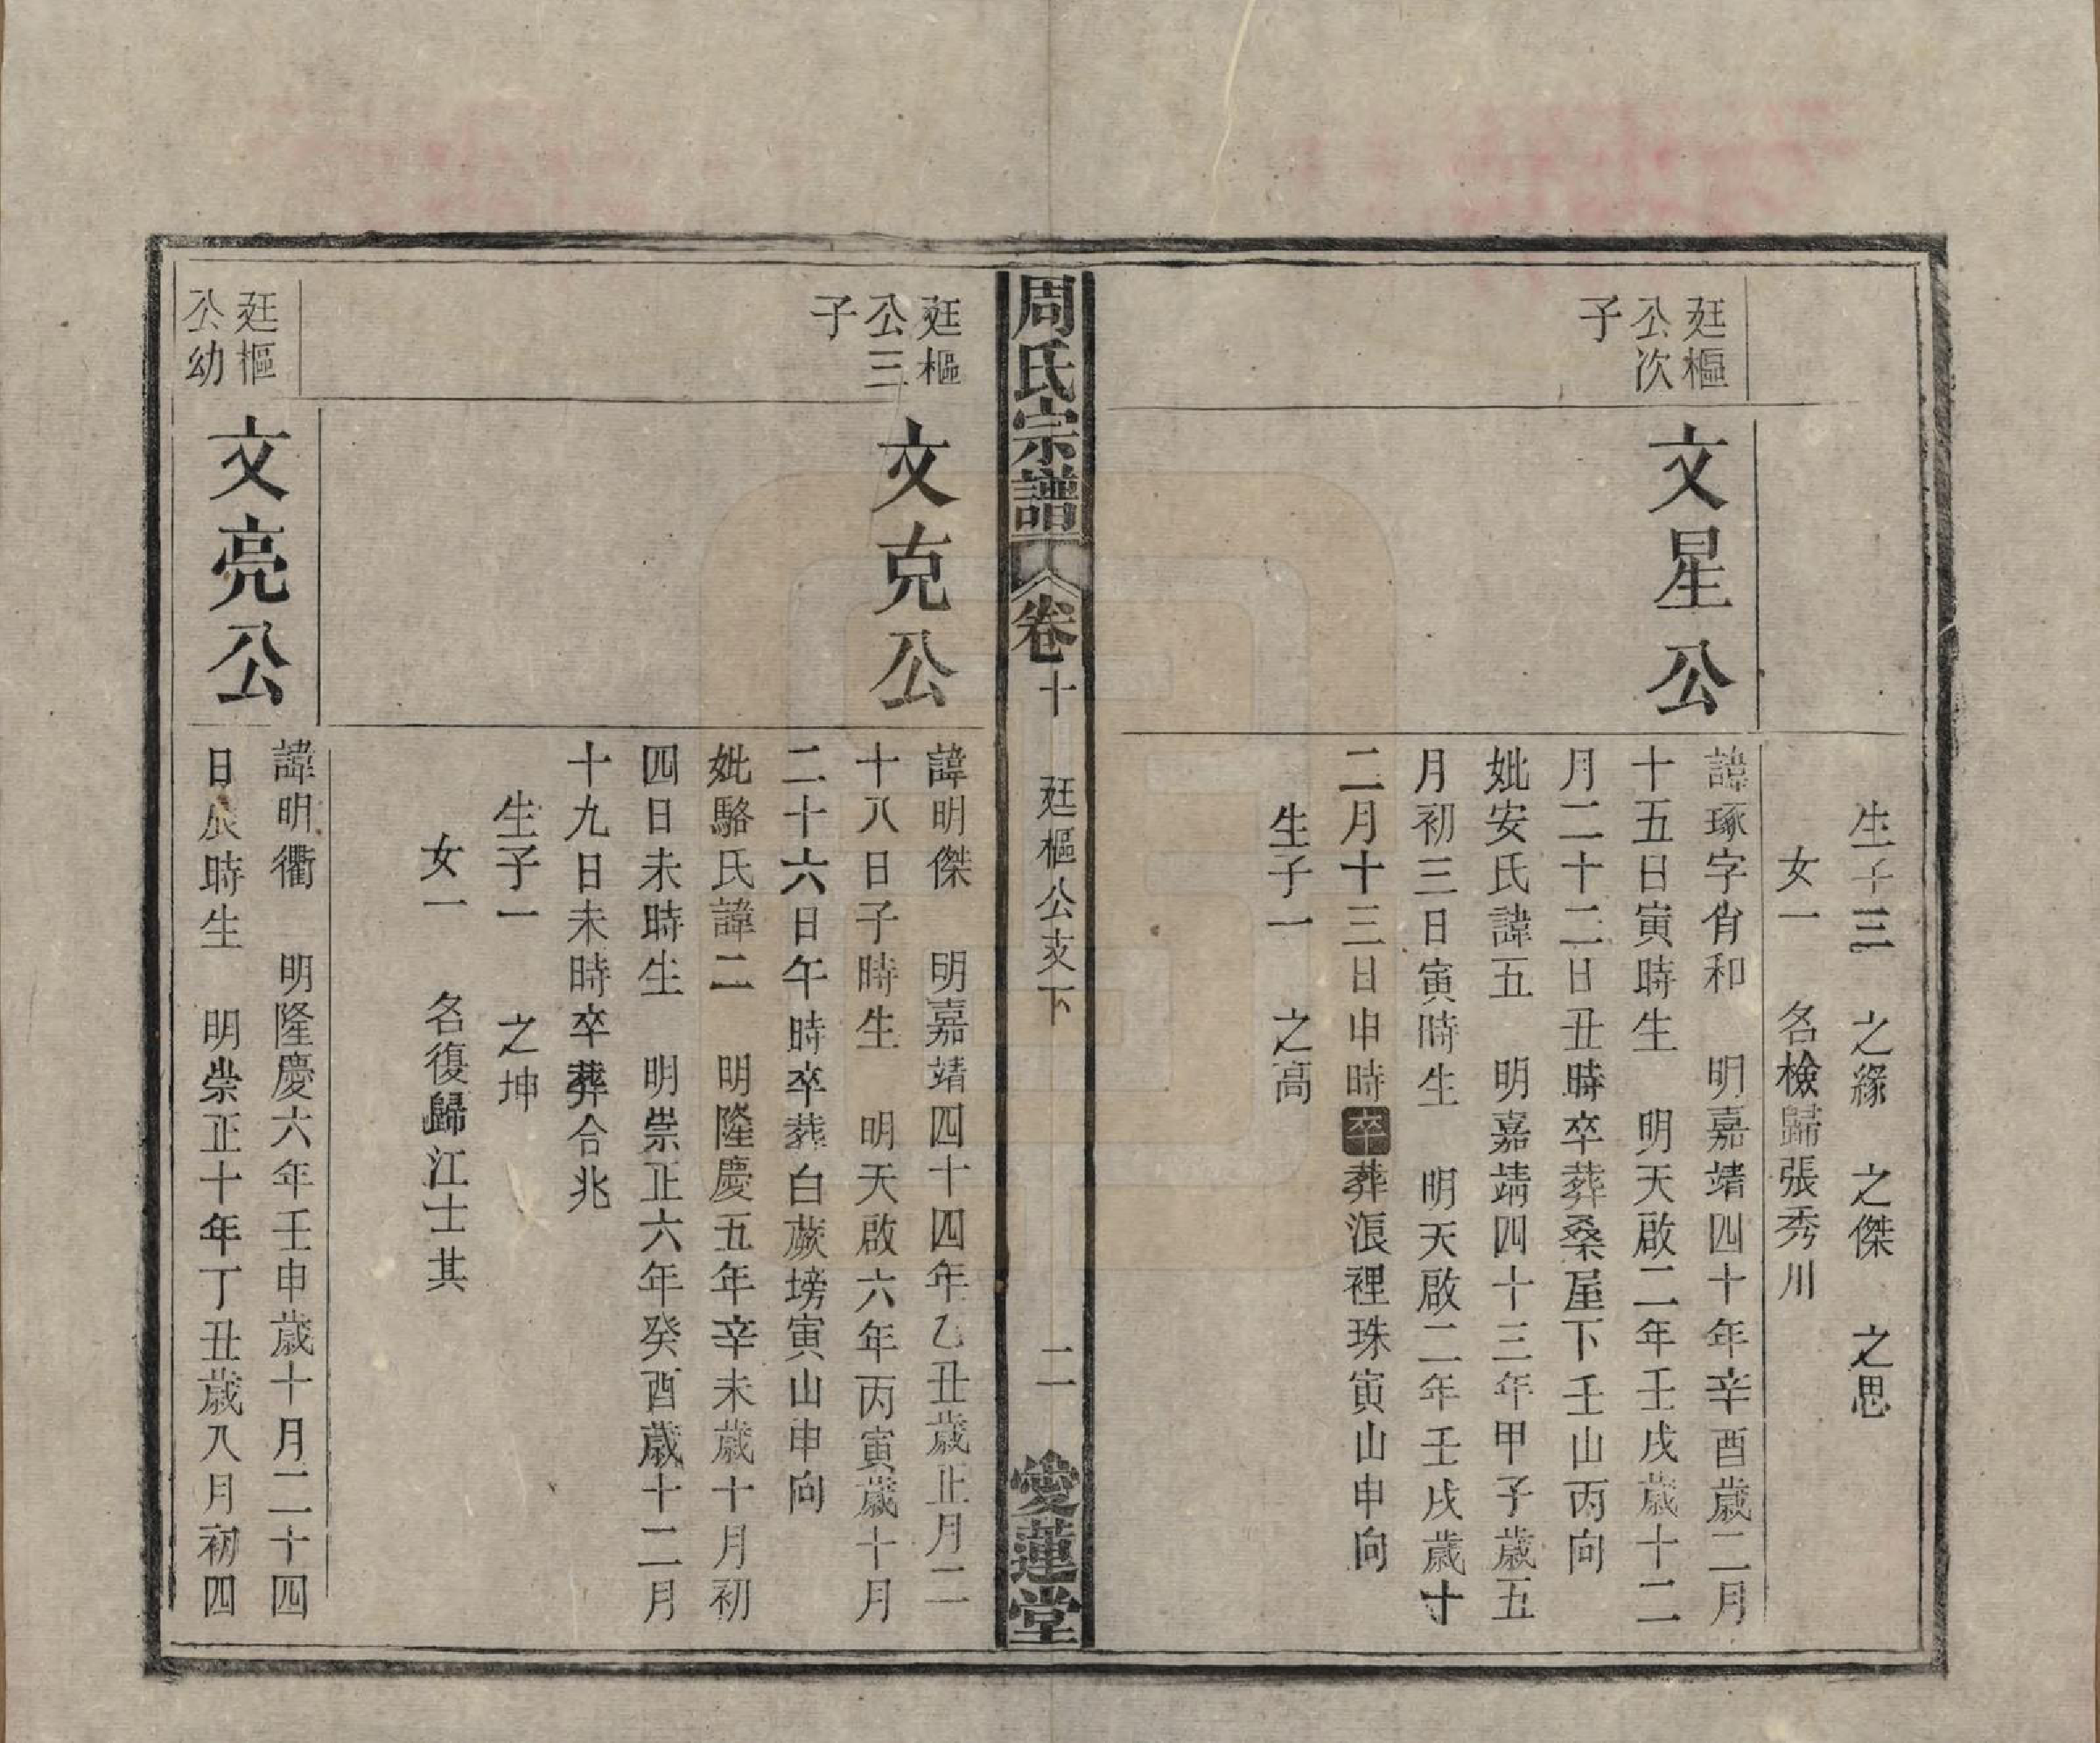 生子三　之緣　之傑　之思
女一　名檢歸張秀川
廷樞
公次
子
文星公
諱琢字育和　明嘉靖四十年辛酉歲二月
十五日寅時生　明天啟二年壬戌歲十二
月二十二日丑時卒葬桑屋下壬山丙向
妣安氏諱五　明嘉靖四十三年甲子歲五
月初三日寅時生　明天啟二年壬戌歲十
二月十三日申時卒葬浪裡珠寅山申向
生子一　之高
周氏宗譜　卷十　廷樞公支下　二　愛蓮堂
廷樞
公三
子
文克公
諱明傑　明嘉靖四十四年乙丑歲正月二
十八日子時生　明天啟六年丙寅歲十月
二十六日午時卒葬白蕨塝寅山申向
妣駱氏諱二　明隆慶五年辛未歲十月初
四日未時生　明崇正六年癸酉歲十二月
十九日未時卒葬合兆
生子一　之坤
女一　名復歸江士其
廷樞
公幼
文亮公
諱明衢　明隆慶六年壬申歲十月二十四
日辰時生　明崇正十年丁丑歲八月初四